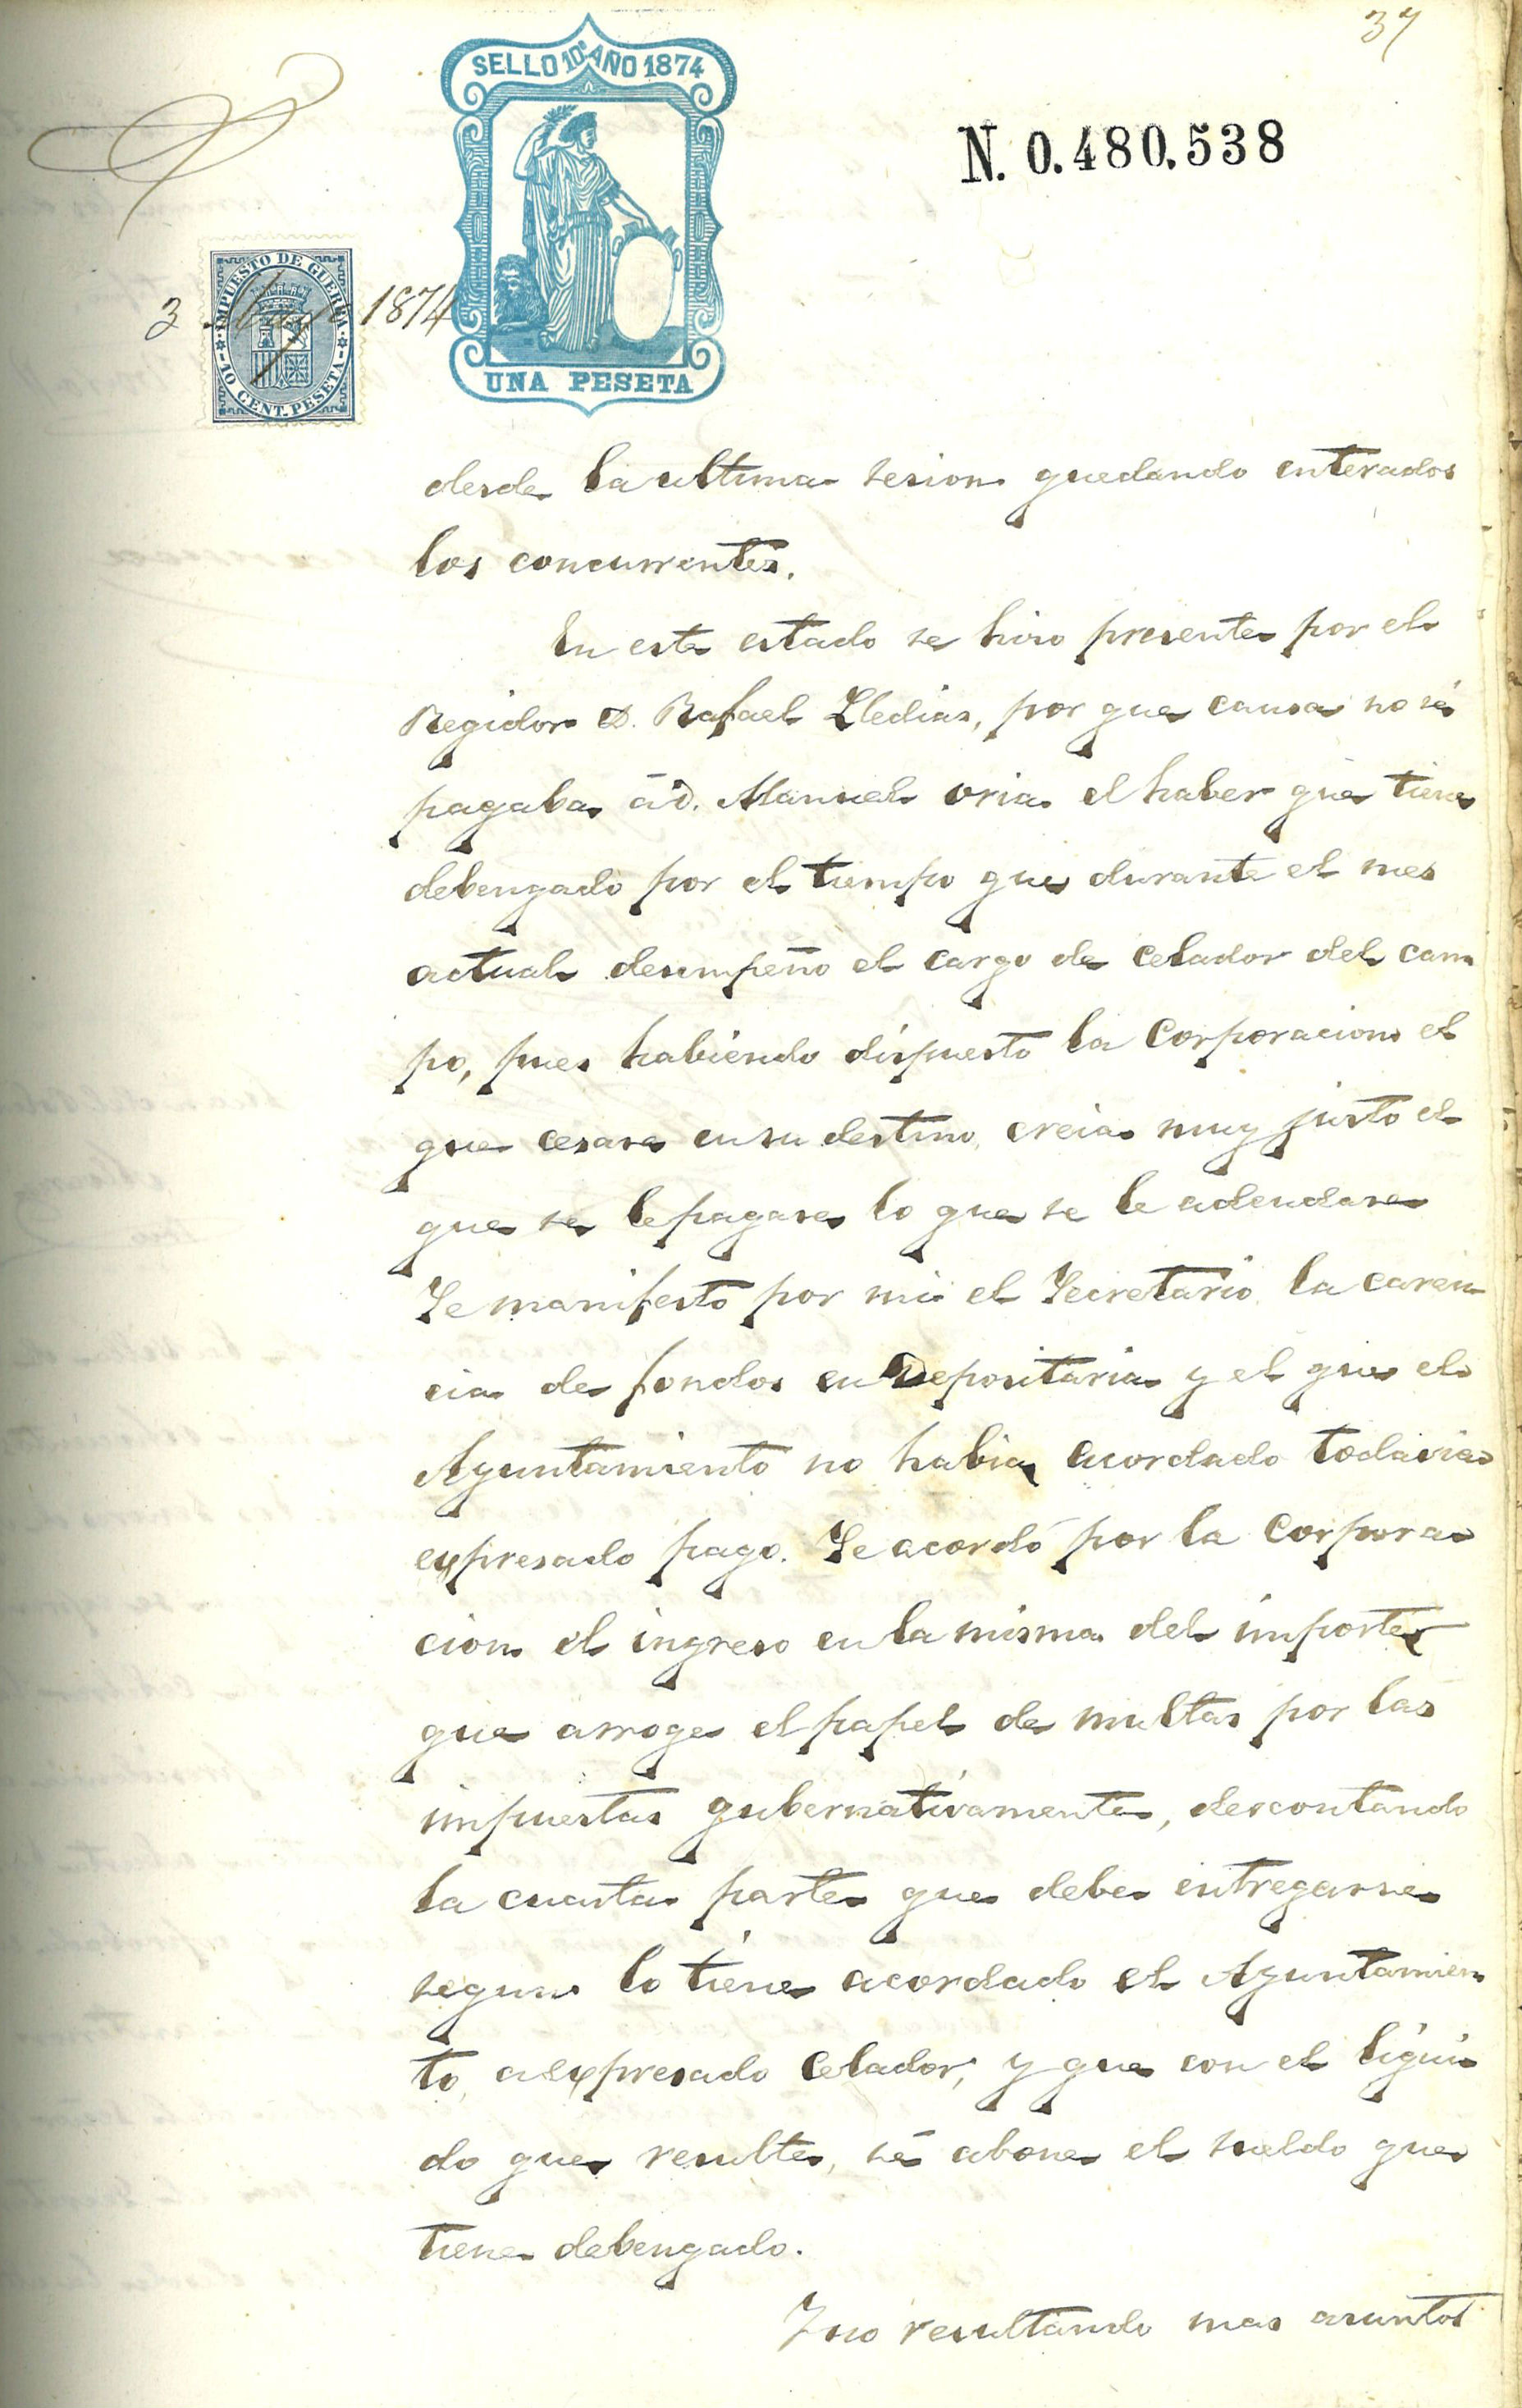 37
SELLO 10º AÑO 1874
N. 0.480.538
IMPUESTO DE GUERRA
3 Mayo 1874
10 CENT. PESETA
UNA PESETA
desde la ultima sesion quedando enterados
los concurrentes.
En este estado se hiso presente por el
Regidor D. Rafael Lledias, por que causa no sé
pagaba á D. Manuel oria el haber que tiene
debengado por el tiempo que durante el mes
actual desempeño el cargo de celador del cam
po, pues habiendo dispuesto la Corporacion el
que cesara en su destino, creia muy justo el
que se le pagase lo que se le adeudase
Se manifesto por mi el Secretario la caren
cia de fondos en Depositaria y el que el
Ayuntamiento no habia acordado todavia
expresado pago. Se acordó por la Corpora
cion el ingreso en la misma del importe
que arroge el papel de multas por las
impuestas gubernativamente, descontando
la cuarta parte que debe entregarse
segun lo tiene acordado el Ayuntamien
to, al expresado Celador; y que con el liqui
do que resulte, sé abone el sueldo que
tiene debengado.
Y no resultando mas asuntos